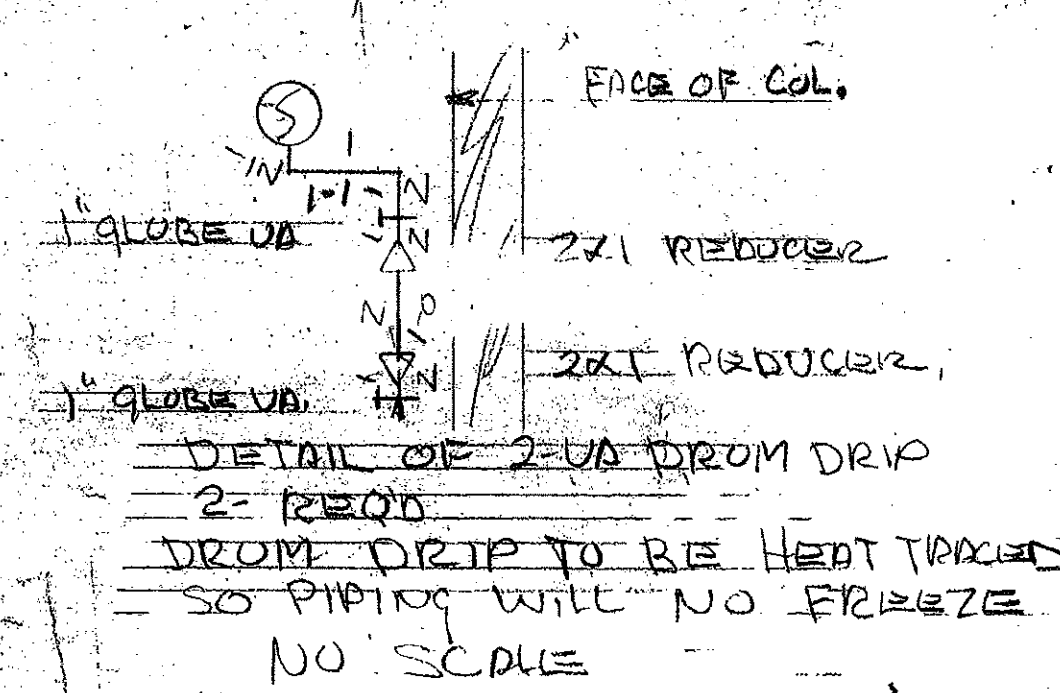 FACE OF COL.
S
1
N
1-1
N
1" GLOBE VA
N
2X1 REDUCER
N
1-0
2X1 REDUCER,
N
1" GLOBE VA.
DETAIL OF 2-VA DROM DRIP
2- REQ'D
DROM DRIP TO BE HEAT TRACED
SO PIPING WILL NO FREEZE
NO SCALE